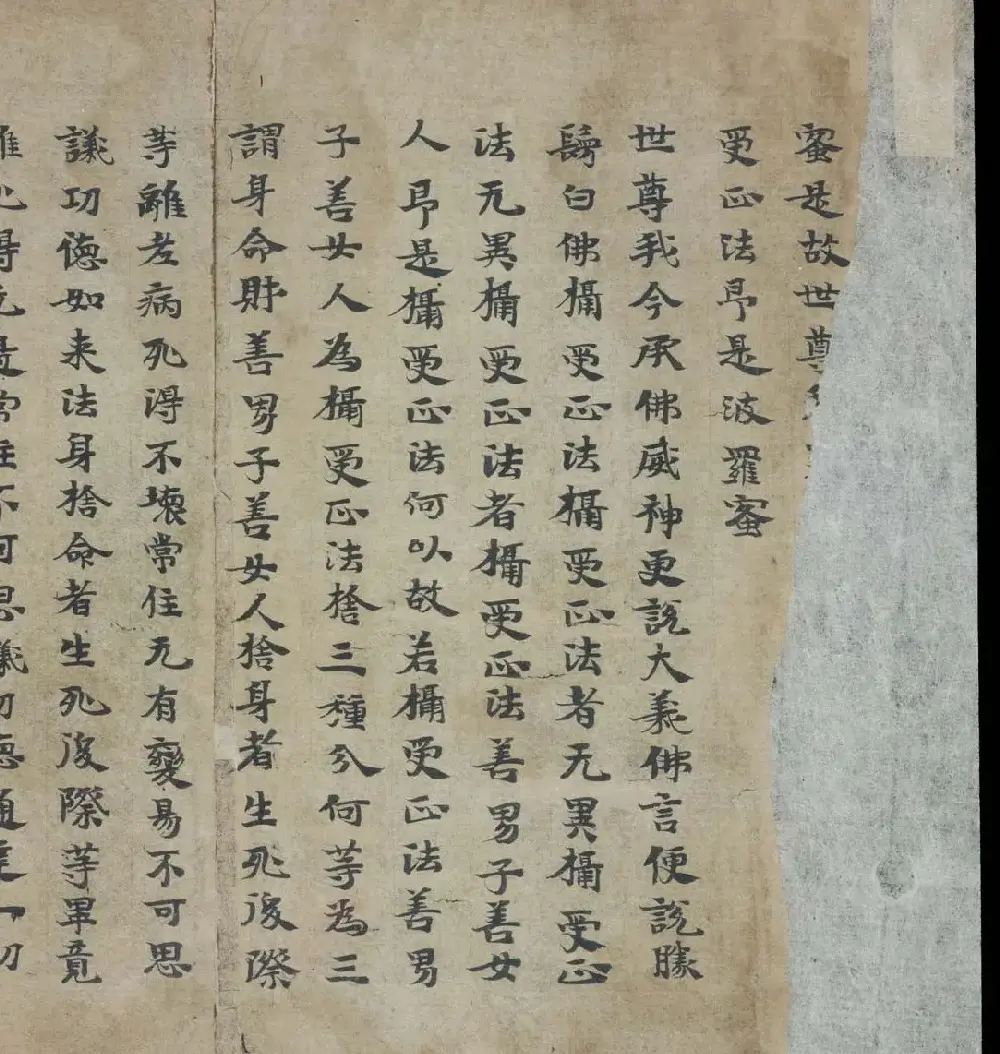 蜜是故世尊
受正法即是波羅蜜
世尊我今承佛威神更說大義佛言便說勝
鬘白佛攝受正法攝受正法者无異攝受正
法无異攝受正法者攝受正法善男子善女
人即是攝受正法何以故若攝受正法善男
子善女人為攝受正法捨三種分何等為三
謂身命財善男子善女人捨身者生死後際
等離老病死得不壞常住无有變易不可思
議功德如来法身捨命者生死後際等畢竟
離死得无常住不可思議功德通達一切